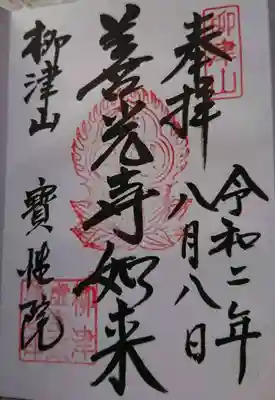 柳津山
奉拝
令和二年
八月八日
善光寺如来
柳津山
寶性院